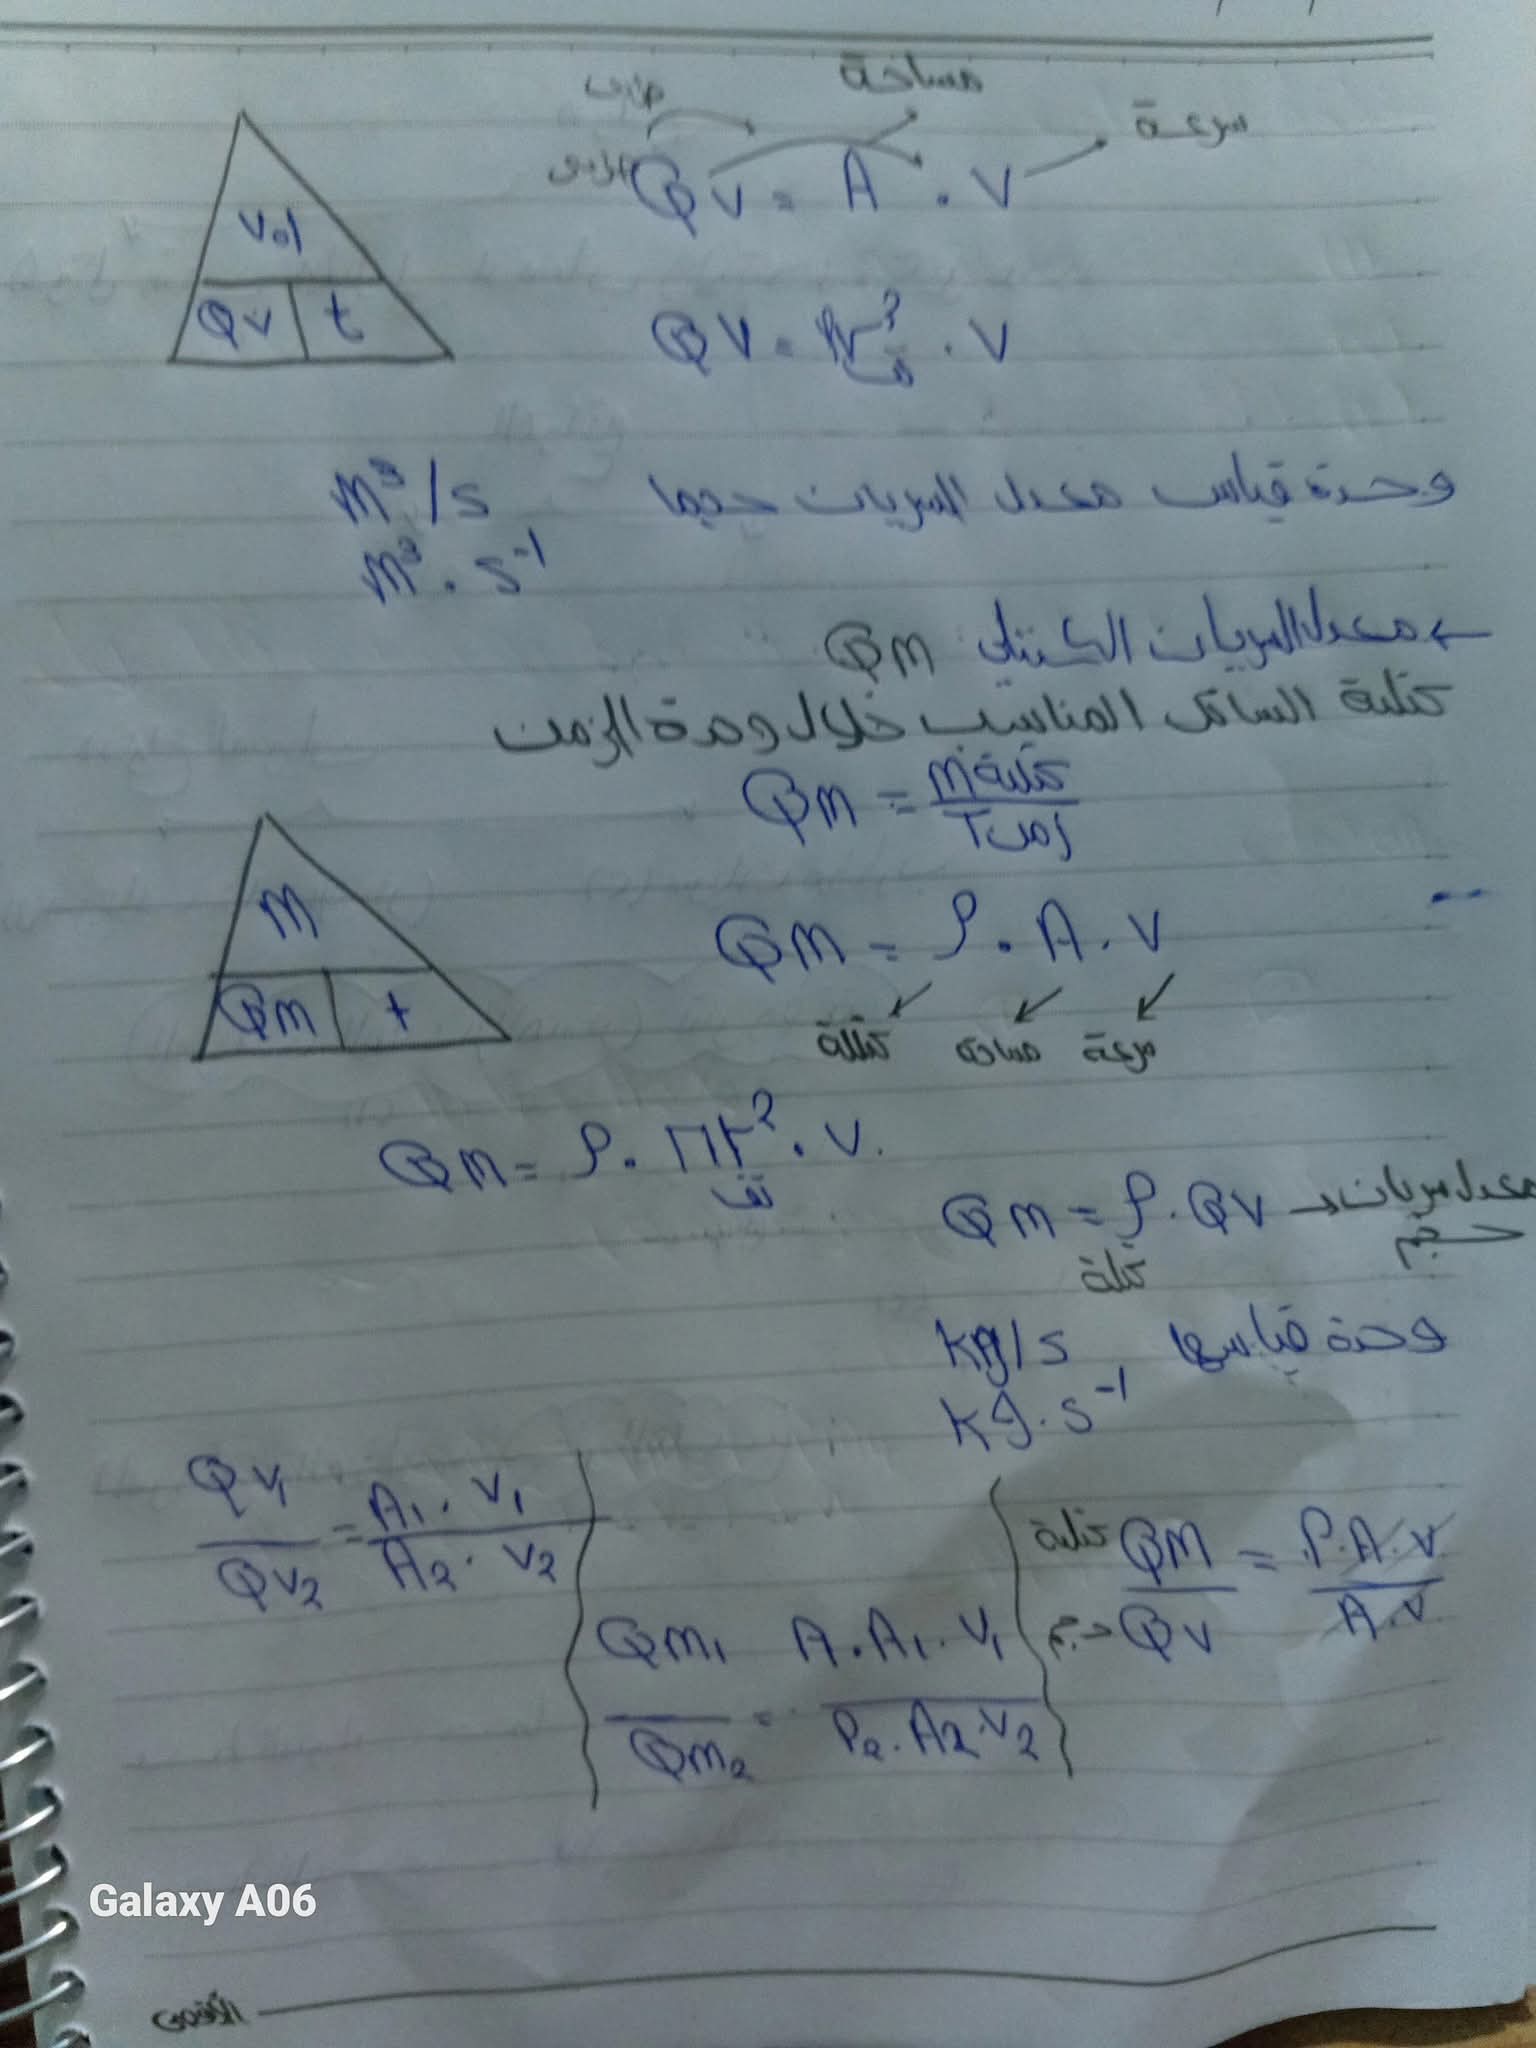 مساحة
سرعة
Qv = A . V
Vol
Qv t
Qv = πr² . V
نق
وحدة قياس معدل السريان حجما m³/s
m³ . s⁻¹
← معدل السريان الكتلي Qm
كتلة السائل المناسب خلال وحدة الزمن
Qm = m كتلة / T زمن
M
Qm t
Qm = ρ . A . V
كتلة مساحة سرعة
Qm = ρ . πr² . V.
نق
Qm = ρ . Qv → معدل سريان
حجم
كتلة
وحدة قياسها kg/s
kg . s⁻¹
Qv₁ / Qv₂ = A₁ . V₁ / A₂ . V₂
كتلة QM / حجم Qv = ρ . A . V / A . V
Qm₁ / Qm₂ = A . A₁ . V₁ / ρ₂ . A₂ . V₂
Galaxy A06